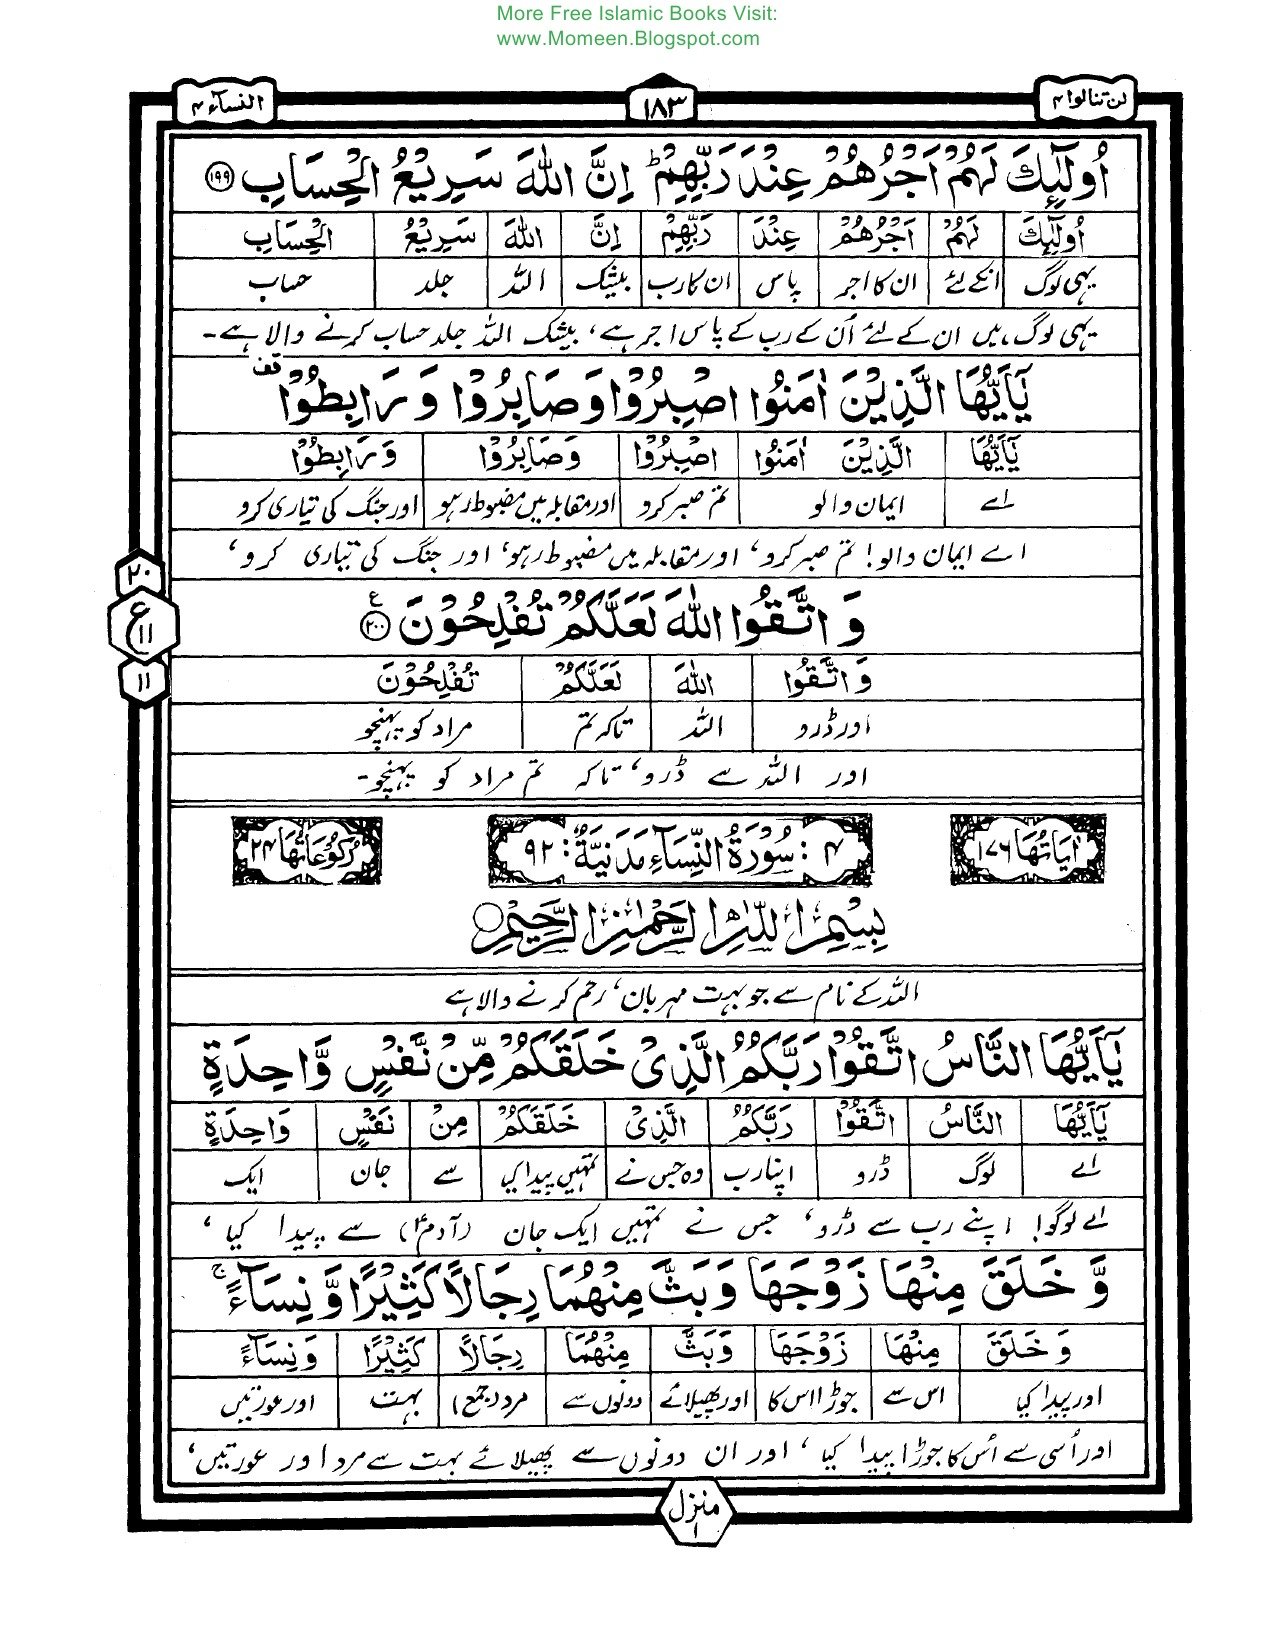 More Free Islamic Books Visit:
www.Momeen.Blogspot.com
لن تنالوا ۴ ۱۸۳ النسآء ۴
اُولٰٓئِكَ لَهُمْ اَجْرُهُمْ عِنْدَ رَبِّهِمْ ؕ اِنَّ اللّٰهَ سَرِيْعُ الْحِسَابِ ۱۹۹
اُولٰٓئِكَ لَهُمْ اَجْرُهُمْ عِنْدَ رَبِّهِمْ اِنَّ اللّٰهَ سَرِيْعُ الْحِسَابِ
یہی لوگ انکے لئے ان کا اجر پاس ان کا رب بیشک اللہ جلد حساب
یہی لوگ ہیں ان کے لئے اُن کے رب کے پاس اجر ہے، بیشک اللہ جلد حساب کرنے والا ہے۔
يٰۤاَيُّهَا الَّذِيْنَ اٰمَنُوا اصْبِرُوْا وَصَابِرُوْا وَرَابِطُوْا قف
يٰۤاَيُّهَا الَّذِيْنَ اٰمَنُوا اصْبِرُوْا وَصَابِرُوْا وَرَابِطُوْا
اے ایمان والو تم صبر کرو اور مقابلہ میں مضبوط رہو اور جنگ کی تیاری کرو
اے ایمان والو! تم صبر کرو، اور مقابلہ میں مضبوط رہو، اور جنگ کی تیاری کرو،
۲۰
ع ۱۱
۱۱
وَاتَّقُوا اللّٰهَ لَعَلَّكُمْ تُفْلِحُوْنَ ۲۰۰ ع
وَاتَّقُوا اللّٰهَ لَعَلَّكُمْ تُفْلِحُوْنَ
اور ڈرو اللہ تاکہ تم مراد کو پہنچو
اور اللہ سے ڈرو، تاکہ تم مراد کو پہنچو۔
اٰيَاتُهَا ۱۷۶ ۴: سُوْرَةُ النِّسَآءِ مَدَنِيَّةٌ: ۹۲ رُكُوْعَاتُهَا ۲۴
بِسْمِ اللّٰهِ الرَّحْمٰنِ الرَّحِيْمِ
اللہ کے نام سے جو بہت مہربان، رحم کرنے والا ہے
يٰۤاَيُّهَا النَّاسُ اتَّقُوْا رَبَّكُمُ الَّذِيْ خَلَقَكُمْ مِّنْ نَّفْسٍ وَّاحِدَةٍ
يٰۤاَيُّهَا النَّاسُ اتَّقُوْا رَبَّكُمُ الَّذِيْ خَلَقَكُمْ مِنْ نَفْسٍ وَاحِدَةٍ
اے لوگ ڈرو اپنا رب وہ جس نے تمہیں پیدا کیا سے جان ایک
اے لوگو! اپنے رب سے ڈرو، جس نے تمہیں ایک جان (آدمؑ) سے پیدا کیا،
وَّخَلَقَ مِنْهَا زَوْجَهَا وَبَثَّ مِنْهُمَا رِجَالًا كَثِيْرًا وَّنِسَآءً ۚ
وَخَلَقَ مِنْهَا زَوْجَهَا وَبَثَّ مِنْهُمَا رِجَالًا كَثِيْرًا وَنِسَآءً
اور پیدا کیا اس سے جوڑا اس کا اور پھیلائے دونوں سے مرد (جمع) بہت اور عورتیں
اور اُسی سے اُس کا جوڑا پیدا کیا، اور ان دونوں سے پھیلائے بہت سے مرد اور عورتیں،
منزل ۱